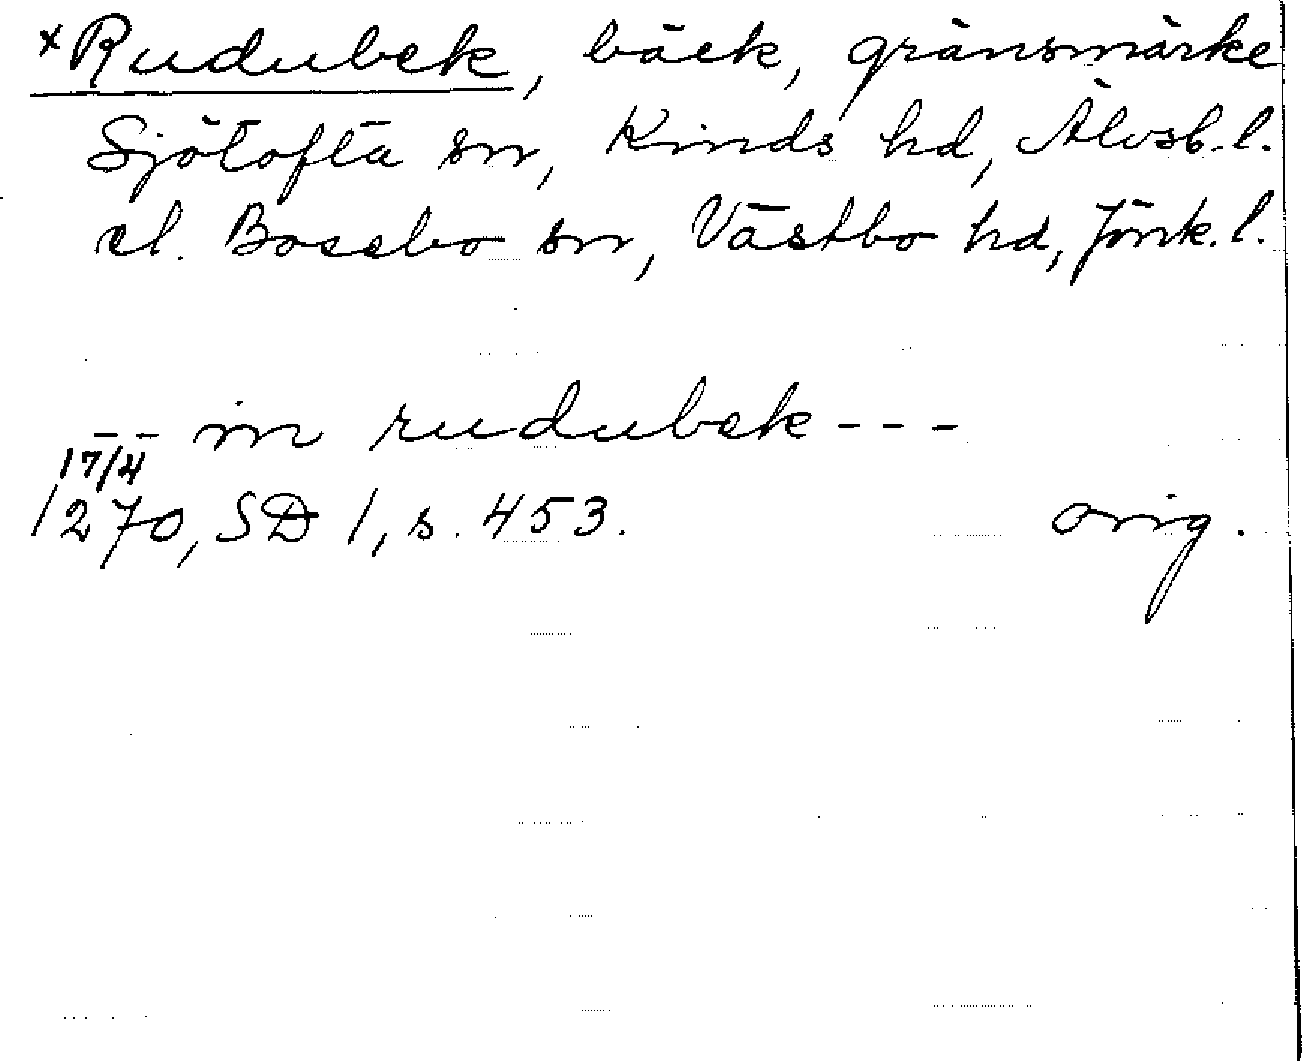 *Rudubek, bäck, gränsmärke
Sjötofta sn, Kinds hd, Älvsb. l.
el. Bosebo sn, Västbo hd, Jönk. l.
-- in rudubek ---
17/4
1270, SD 1, s. 453. orig.